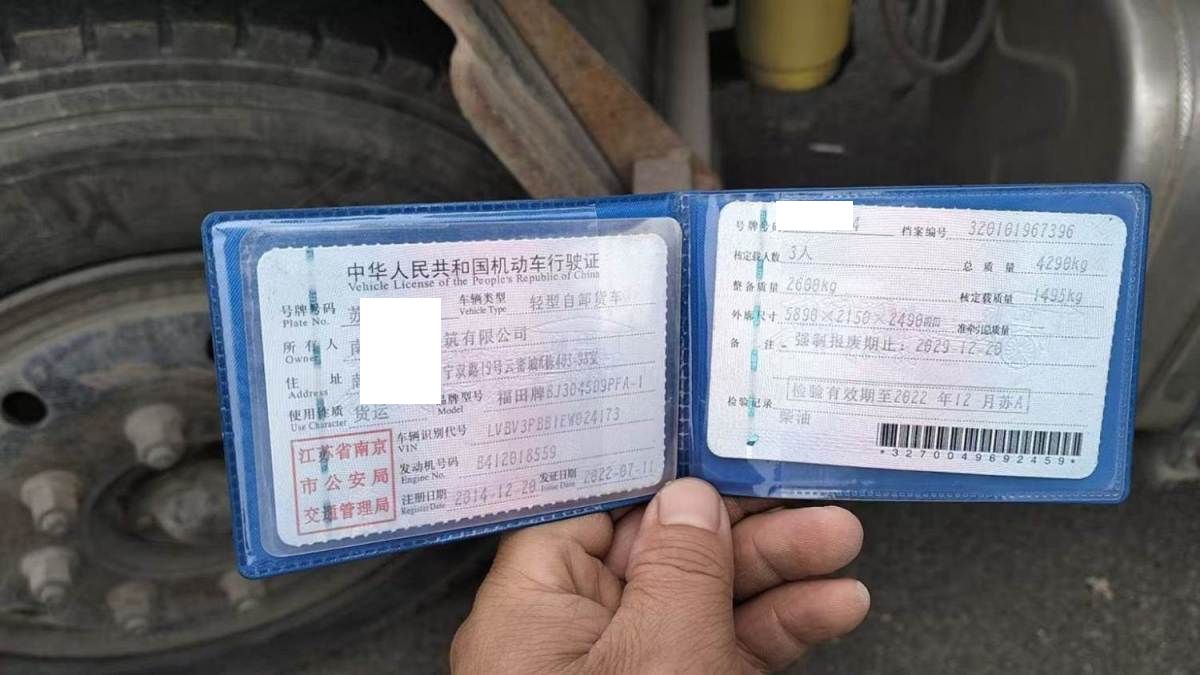 中华人民共和国机动车行驶证
Vehicle License of the People's Republic of China
号牌号码 苏 车辆类型 轻型自卸货车
Plate No. Vehicle Type
所有人 南 筑有限公司
Owner
住址 宁双路19号云密城C栋401-98室
Address
使用性质 货运 品牌型号 福田牌BJ3045D9PFA-1
Use Character Model
江苏省南京市公安局交通管理局
车辆识别代号 LVBV3PBB1EW024173
VIN
发动机号码 B412018559
Engine No.
注册日期 2014-12-20 发证日期 2022-07-11
Register Date Issue Date
号牌号码 4 档案编号 320101967396
核定载人数 3人 总质量 4290kg
整备质量 2600kg 核定载质量 1495kg
外廓尺寸 5890×2150×2490mm 准牵引总质量
备注 强制报废期止：2029-12-20
检验记录 检验有效期至2022年12月苏A
柴油
*3270049692459*